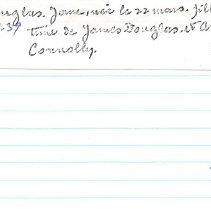 uglas. Jane, née le 22 mars. fill
.39 time de James Douglas. et A
Connolly.